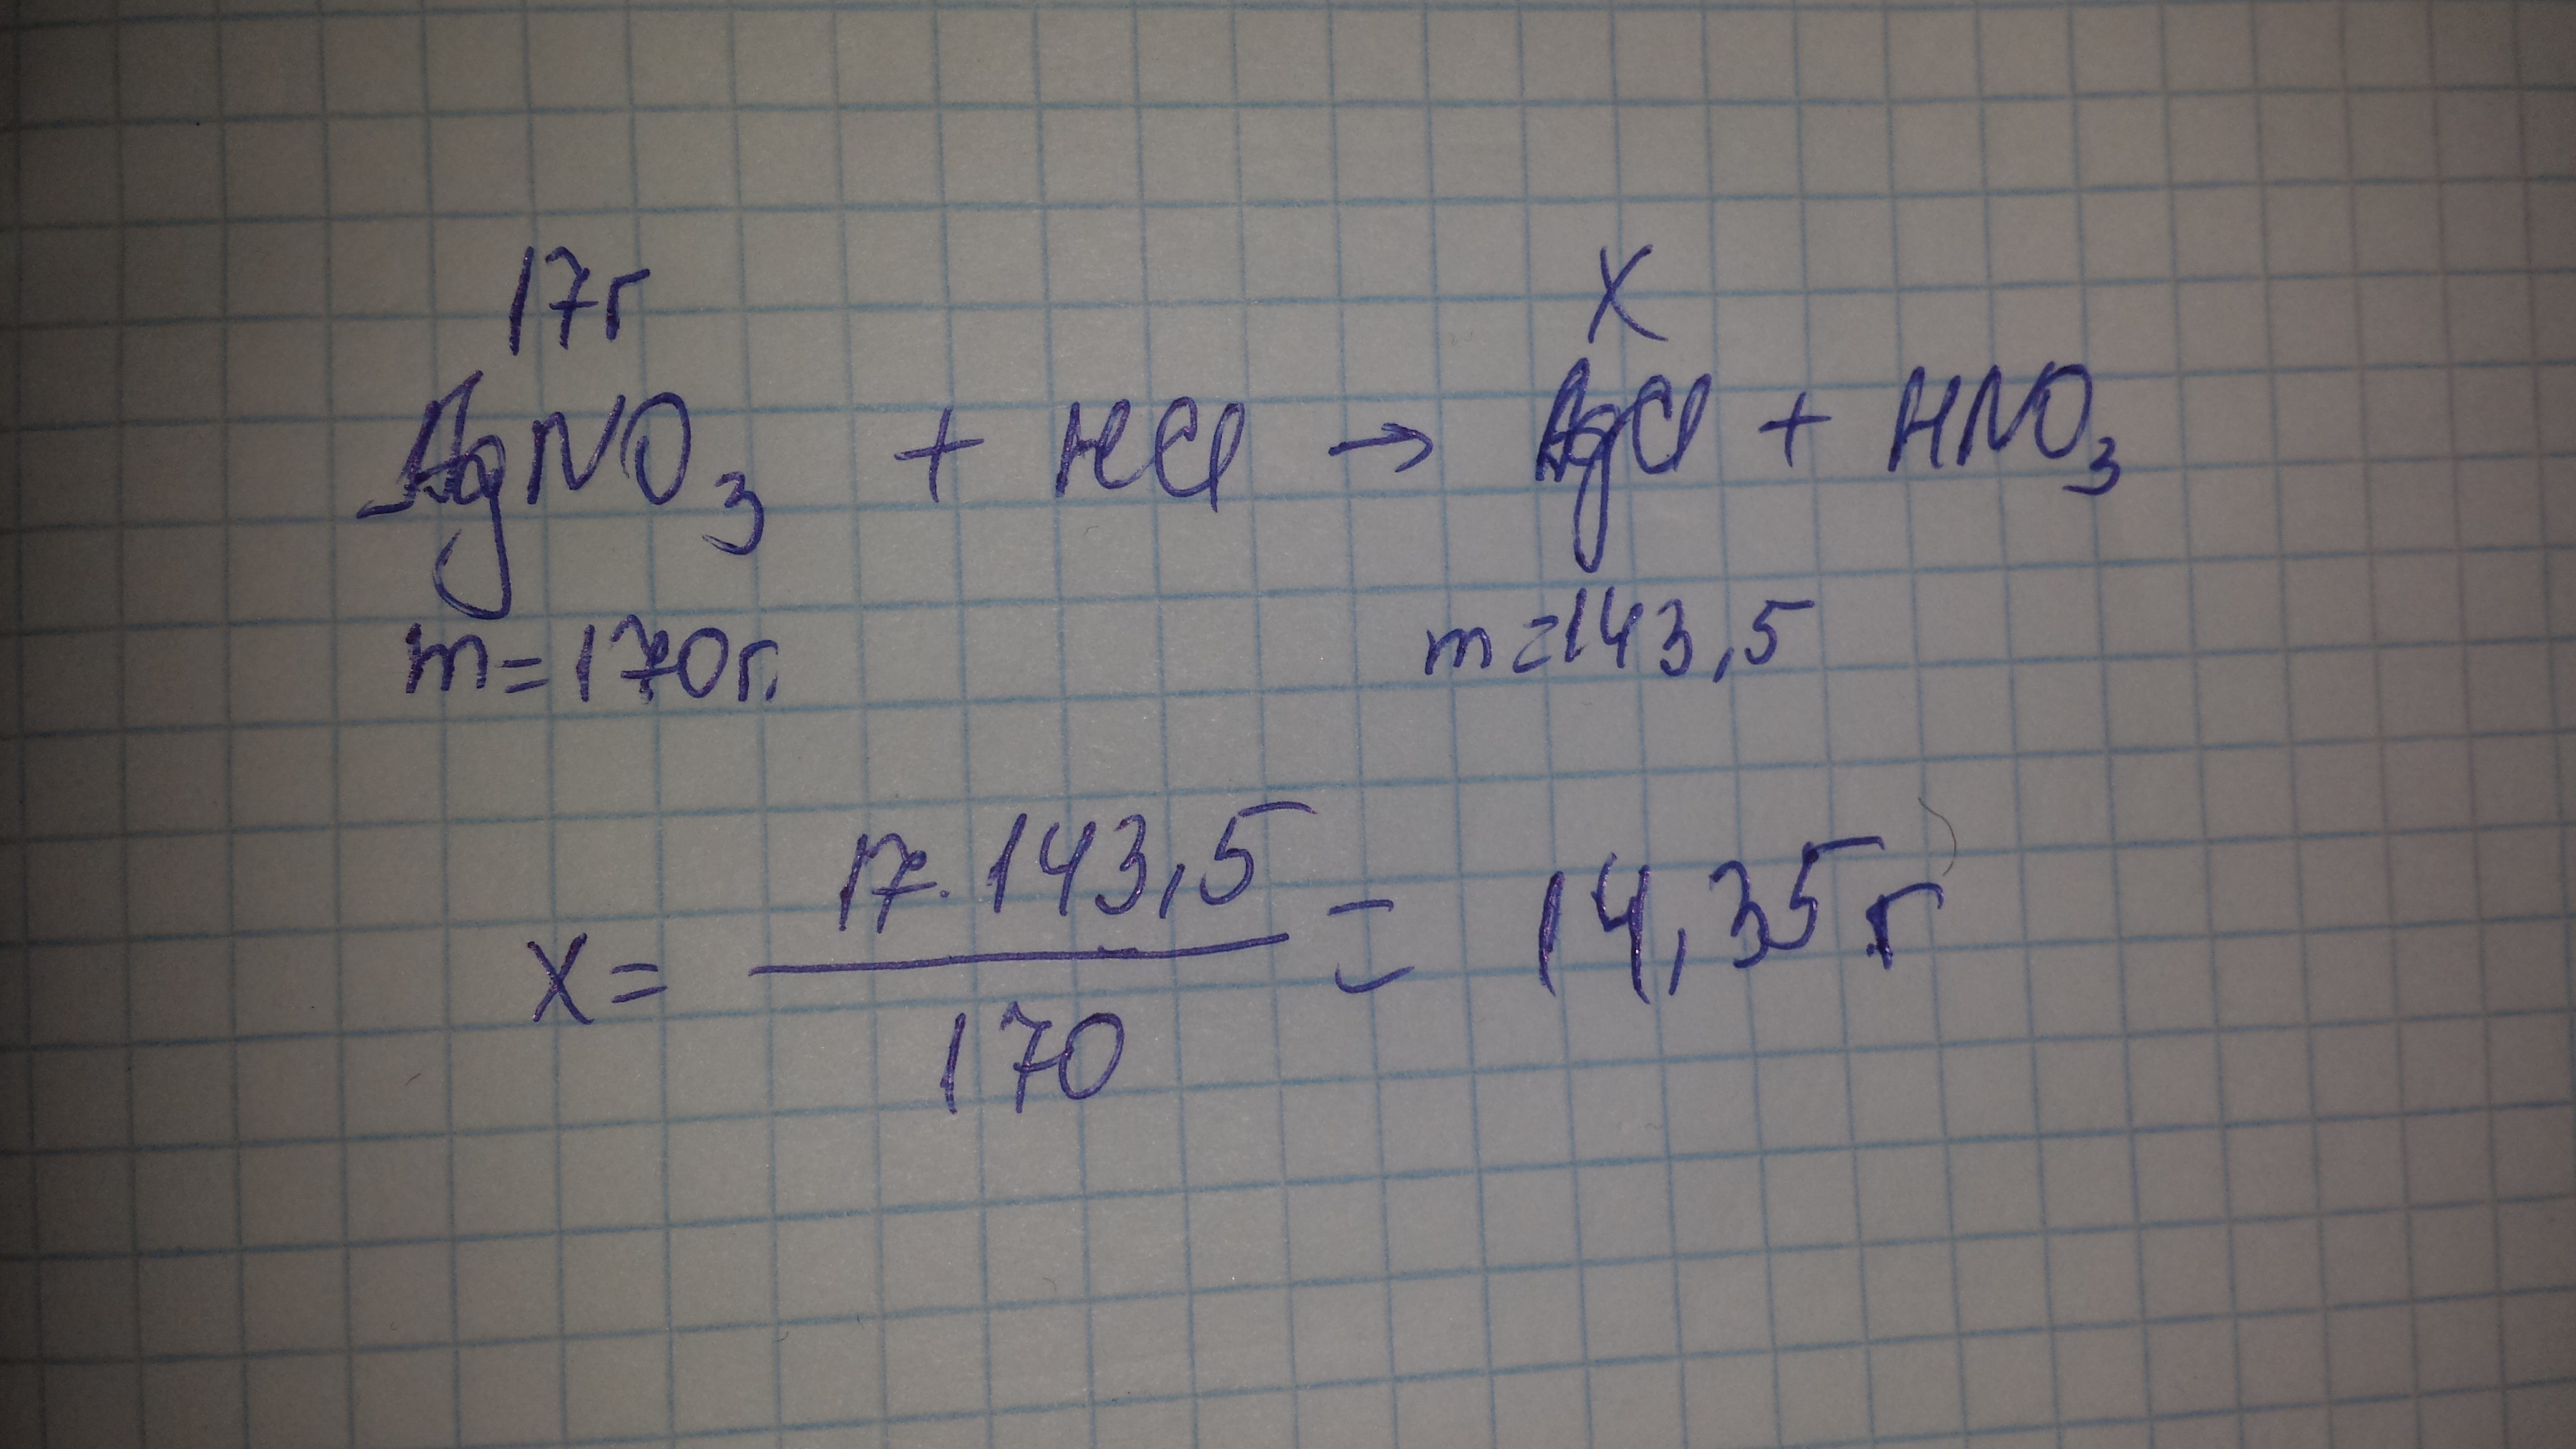 17г X
AgNO3 + HCl → AgCl + HNO3
m=170г. m=143,5
17·143,5
x= = 14,35г
170